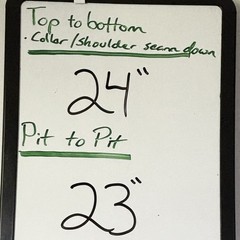 Top to bottom
· Collar/shoulder seam down
24"
Pit to Pit
23"